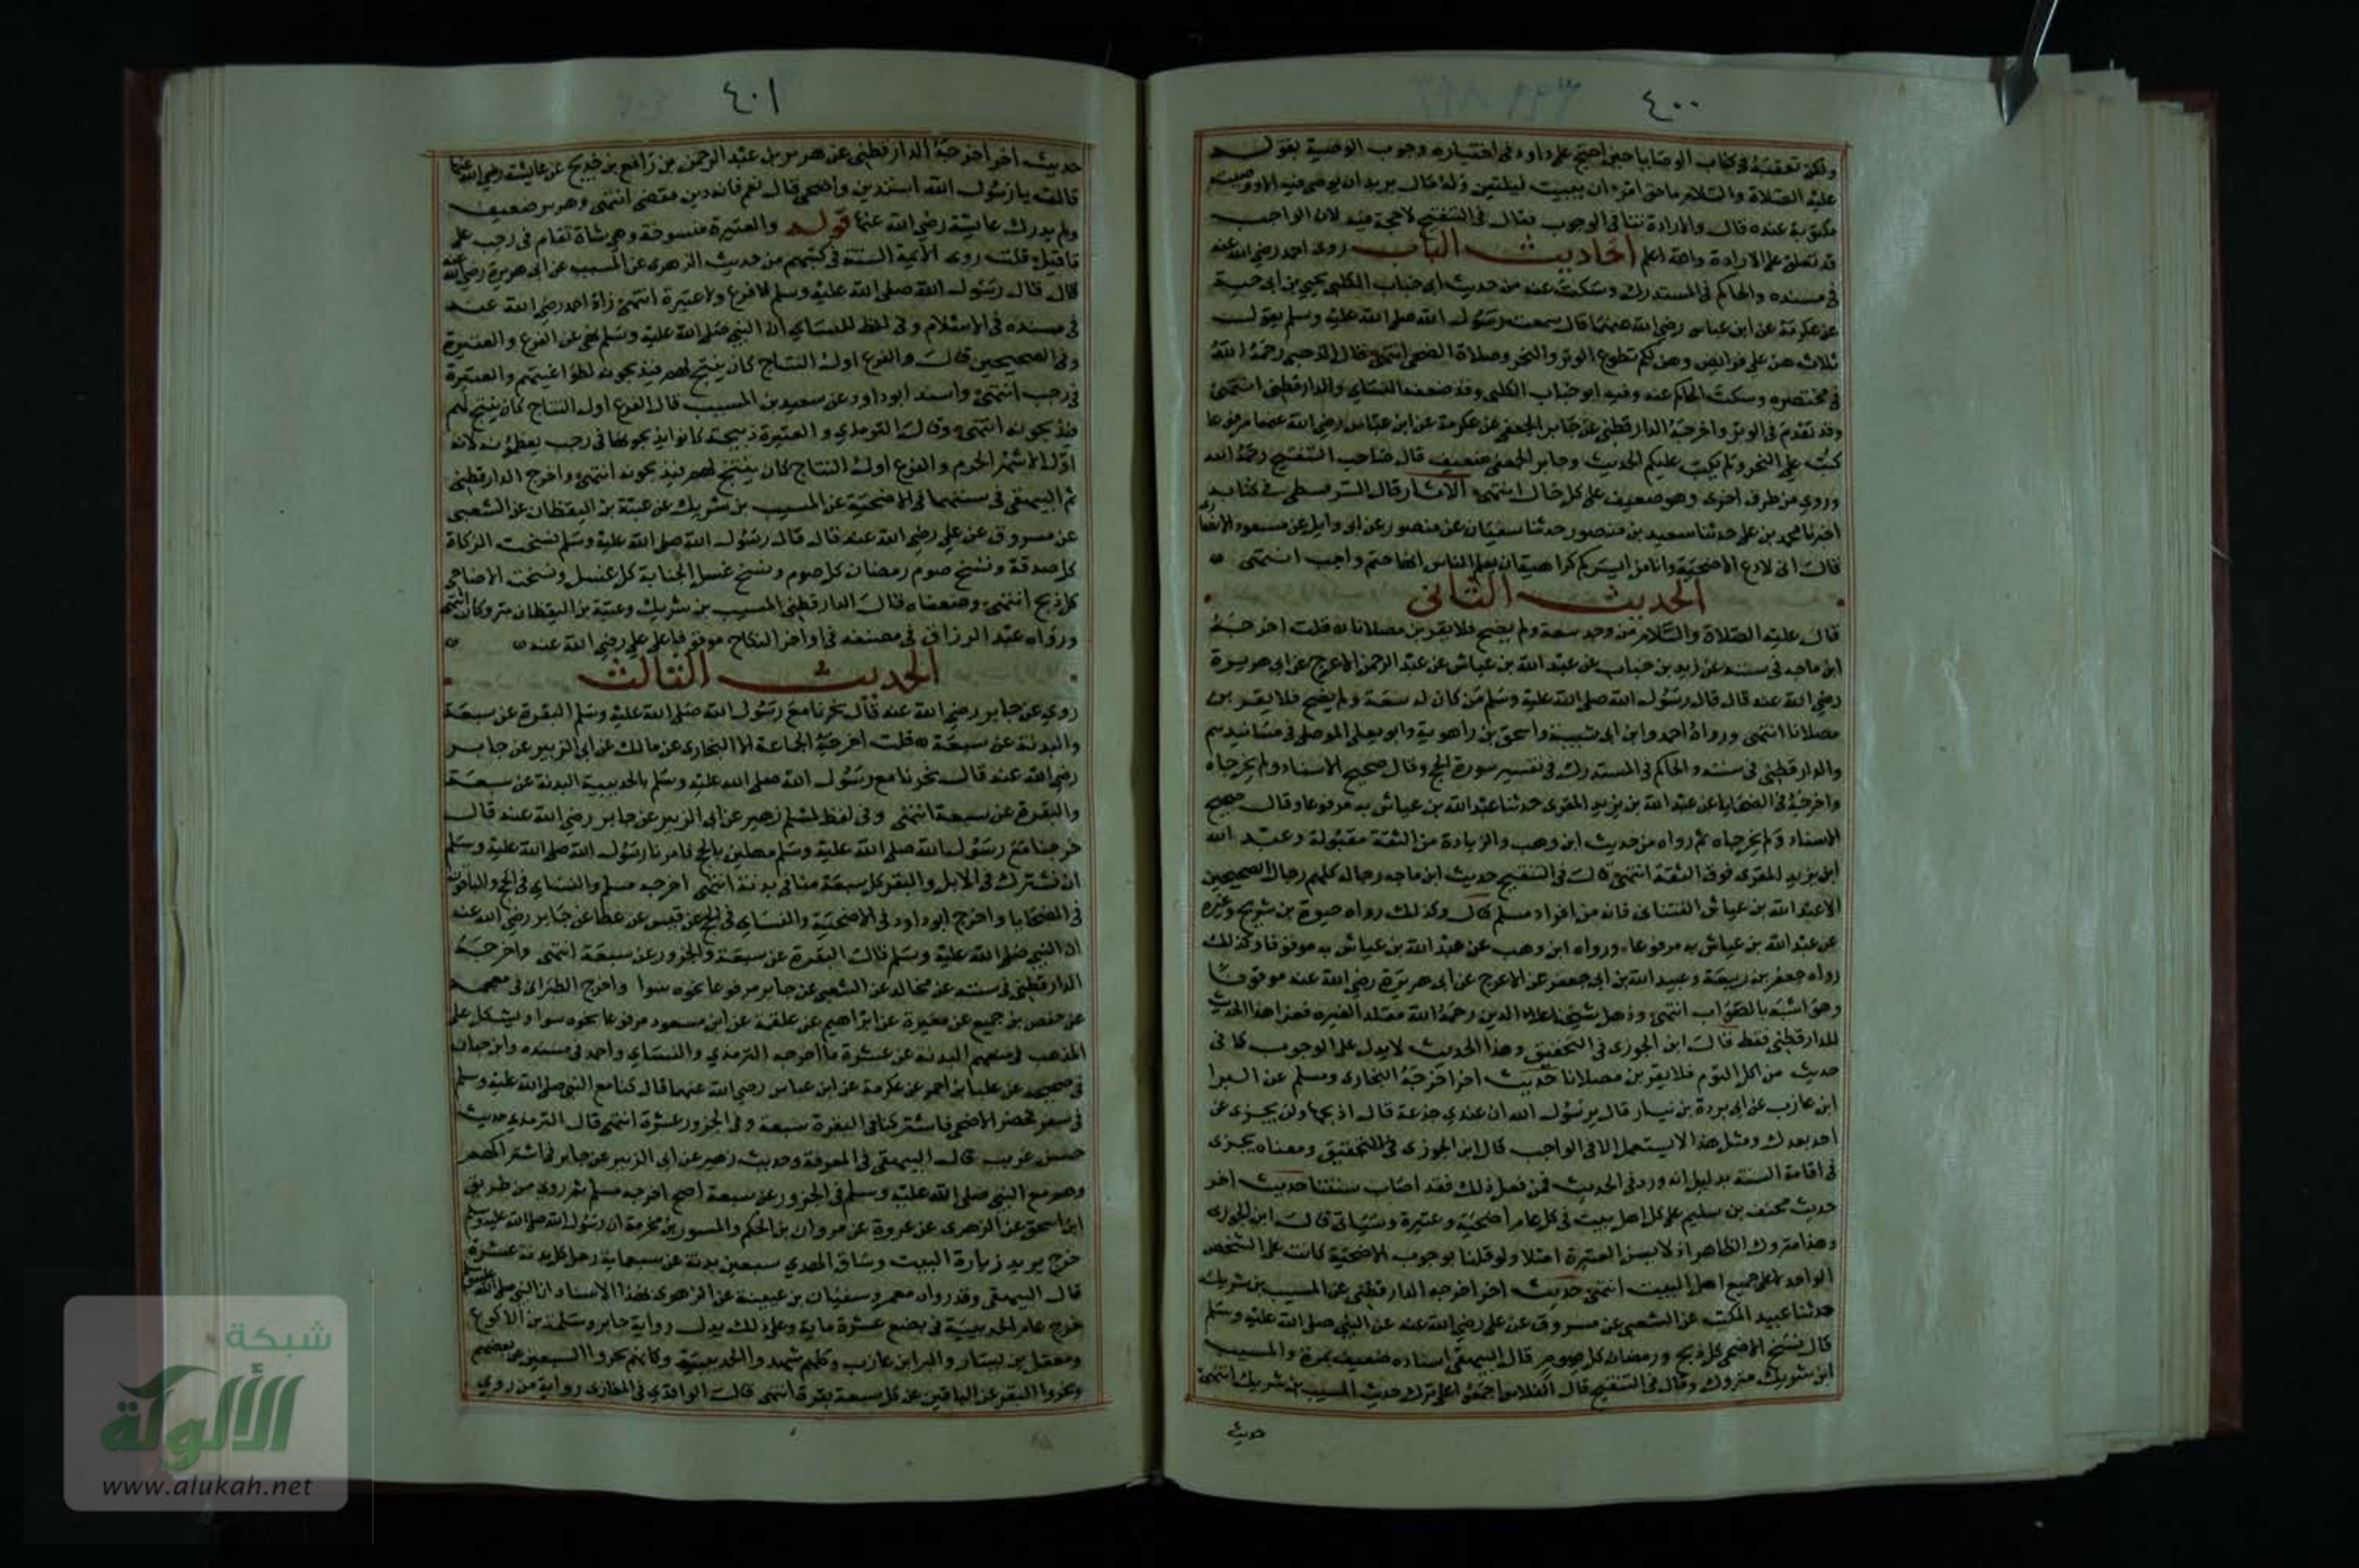 ٤٠٠
ولكن تعقبه في كتاب الوصايا حين احتج على داود في اختياره وجوب الوصية بقوله
عليه الصلاة والسلام ما حق امرء ان يبيت ليلتين وله مال يريد ان يوصى فيه الا ووصيته
مكتوبة عنده قال والارادة تنافي الوجوب فقال في التنقيح لا حجة فيه لان الواجب
قد تعلق على الارادة والله اعلم احاديث الباب روى احمد رضي الله عنه
في مسنده والحاكم في المستدرك وسكت عنه من حديث ابي جناب الكلبي يحيى بن ابي حية
عن عكرمة عن ابن عباس رضي الله عنهما قال سمعت رسول الله صلى الله عليه وسلم يقول
ثلاث هن علي فرائض وهن لكم تطوع الوتر والنحر وصلاة الضحى انتهى قال الذهبي رحمه الله
في مختصره وسكت الحاكم عنه وفيه ابو جناب الكلبي وقد ضعفه النساي والدارقطني انتهى
وقد تقدم في الوتر واخرجه الدارقطني عن جابر الجعفي عن عكرمة عن ابن عباس رضي الله عنهما مرفوعا
كتب علي النحر ولم يكتب عليكم الحديث وجابر الجعفي ضعيف قال صاحب التنقيح رحمه الله
وروي من طرق اخرى وهو ضعيف على كل حال انتهى الاثار قال السرقسطي في كتابه
اخبرنا محمد بن علي حدثنا سعيد بن منصور حدثنا سفيان عن منصور عن ابي وايل عن مسعود الانصاري
قال اني لادع الاضحية وانا من ايسركم كراهية ان يعلم الناس انها حتم واجب انتهى
الحديث الثاني
قال عليه الصلاة والسلام من وجد سعة ولم يضح فلا يقربن مصلانا قلت اخرجه
ابن ماجه في سننه عن زيد بن حباب عن عبد الله بن عياش عن عبد الرحمن الاعرج عن ابي هريرة
رضي الله عنه قال قال رسول الله صلى الله عليه وسلم من كان له سعة ولم يضح فلا يقربن
مصلانا انتهى ورواه احمد وابن ابي شيبة واسحق بن راهوية وابو يعلى الموصلي في مسانيدهم
والدارقطني في سننه والحاكم في المستدرك في تفسير سورة الحج وقال صحيح الاسناد ولم يخرجاه
واخرجه في الضحايا عن عبد الله بن يزيد المقرى حدثنا عبد الله بن عياش به مرفوعا وقال صحيح
الاسناد ولم يخرجاه ثم رواه من حديث ابن وهب والزيادة من الثقة مقبولة وعبد الله
ابن يزيد المقرى فوق الثقة انتهى قال في التنقيح حديث ابن ماجه رجاله كلهم رجال الصحيحين
الا عبد الله بن عياش القتباني فانه من افراد مسلم قال وكذلك رواه حيوة بن شريح وغيره
عن عبد الله بن عياش به مرفوعا ورواه ابن وهب عن عبد الله بن عياش به موقوفا وكذلك
رواه جعفر بن ربيعة وعبيد الله بن ابي جعفر عن الاعرج عن ابي هريرة رضي الله عنه موقوفا
وهو اشبه بالصواب انتهى وذهل شيخنا علاء الدين رحمه الله مقلدا لغيره فعزا هذا الحديث
للدارقطني فقط قال ابن الجوزى في التحقيق وهذا الحديث لا يدل على الوجوب كما في
حديث من اكل الثوم فلا يقربن مصلانا حديث اخر اخرجه البخارى ومسلم عن البرا
ابن عازب عن ابي بردة بن نيار قال يرسول الله ان عندي جذعة قال اذبحها ولن يجزى عن
احد بعدك ومثل هذا لا يستعمل الا في الواجب قال ابن الجوزى في التحقيق ومعناه يجزى
في اقامة السنة بدليل انه ورد في الحديث فمن فعل ذلك فقد اصاب سنتنا حديث اخر
حديث مخنف بن سليم على كل اهل بيت في كل عام اضحية وعتيرة وسياتي قال ابن الجوزى
وهذا متروك الظاهر اذ لا يسن العتيرة اصلا ولو قلنا بوجوب الاضحية كانت على الشخص
الواحد لا على جميع اهل البيت انتهى حديث اخر اخرجه الدارقطني عن المسيب بن شريك
حدثنا عبيد المكتب عن الشعبي عن مسروق عن علي رضي الله عنه عن النبي صلى الله عليه وسلم
قال نسخ الاضحى كل ذبح ورمضان كل صوم قال البيهقي اسناده ضعيف بمرة والمسيب
ابن شريك متروك وقال في التنقيح قال الفلاس اجمعوا على ترك حديث المسيب بن شريك انتهى
حديث
٤٠١
حديث اخر اخرجه الدارقطني عن هرير بن عبد الرحمن بن رافع بن خديج عن عايشة رضي الله عنها
قالت يا رسول الله استدين واضحي قال نعم فانه دين مقضي انتهى وهرير ضعيف
ولم يدرك عايشة رضي الله عنها قوله والعتيرة منسوخة وهي شاة تقام في رجب على
ما قيل قلت روى الايمة الستة في كتبهم من حديث الزهرى عن المسيب عن ابي هريرة رضي الله عنه
قال قال رسول الله صلى الله عليه وسلم لا فرع ولا عتيرة انتهى زاد احمد رضي الله عنه
في مسنده في الاسلام وفي لفظ للنساي ان النبي صلى الله عليه وسلم نهى عن الفرع والعتيرة
وفي الصحيحين قال والفرع اول النتاج كان ينتج لهم فيذبحونه لطواغيتهم والعتيرة
في رجب انتهى واسند ابو داود عن سعيد بن المسيب قال الفرع اول النتاج كان ينتج لهم
فيذبحونه انتهى وقال الترمذي والعتيرة ذبيحة كانوا يذبحونها في رجب يعظمونه لانه
اول الاشهر الحرم والفرع اول النتاج كان ينتج لهم فيذبحونه انتهى واخرج الدارقطني
ثم البيهقي في سننهما في الاضحية عن المسيب بن شريك عن عتبة بن اليقظان عن الشعبي
عن مسروق عن علي رضي الله عنه قال قال رسول الله صلى الله عليه وسلم نسخت الزكاة
كل صدقة ونسخ صوم رمضان كل صوم ونسخ غسل الجنابة كل غسل ونسخت الاضاحي
كل ذبح انتهى وضعفاه قال الدارقطني المسيب بن شريك وعتبة بن اليقظان متروكان انتهى
ورواه عبد الرزاق في مصنفه في اواخر النكاح موقوفا على علي رضي الله عنه
الحديث الثالث
روي عن جابر رضي الله عنه قال نحرنا مع رسول الله صلى الله عليه وسلم البقرة عن سبعة
والبدنة عن سبعة قلت اخرجه الجماعة الا البخارى عن مالك عن ابي الزبير عن جابر
رضي الله عنه قال نحرنا مع رسول الله صلى الله عليه وسلم بالحديبية البدنة عن سبعة
والبقرة عن سبعة انتهى وفي لفظ لمسلم زهير عن ابي الزبير عن جابر رضي الله عنه قال
خرجنا مع رسول الله صلى الله عليه وسلم مهلين بالحج فامرنا رسول الله صلى الله عليه وسلم
ان نشترك في الابل والبقر كل سبعة منا في بدنة انتهى اخرجه مسلم والنساي في الحج والباقون
في الضحايا واخرج ابو داود في الاضحية والنساي في الحج عن قيس عن عطا عن جابر رضي الله عنه
ان النبي صلى الله عليه وسلم قال البقرة عن سبعة والجزور عن سبعة انتهى واخرجه
الدارقطني في سننه عن مجالد عن الشعبي عن جابر مرفوعا نحوه سوا واخرج الطبراني في معجمه
عن حفص بن جميع عن مغيرة عن ابراهيم عن علقمة عن ابن مسعود مرفوعا نحوه سوا ويشكل على
المذهب في منعهم البدنة عن عشرة ما اخرجه الترمذي والنساي واحمد في مسنده وابن حبان
في صحيحه عن علبا بن احمر عن عكرمة عن ابن عباس رضي الله عنهما قال كنا مع النبي صلى الله عليه وسلم
في سفر فحضر الاضحى فاشتركنا في البقرة سبعة وفي الجزور عشرة انتهى قال الترمذي حديث
حسن غريب قال البيهقي في المعرفة وحديث زهير عن ابي الزبير عن جابر في اشتراكهم
وهم مع النبي صلى الله عليه وسلم في الجزور عن سبعة اصح اخرجه مسلم ثم روي من طريق
ابن اسحق عن الزهرى عن عروة عن مروان بن الحكم والمسور بن مخرمة ان رسول الله صلى الله عليه وسلم
خرج يريد زيارة البيت وساق الهدي سبعين بدنة عن سبعماية رجل كل بدنة عن عشرة
قال البيهقي وقد رواه معمر وسفيان بن عيينة عن الزهرى بهذا الاسناد ان النبي صلى الله عليه وسلم
خرج عام الحديبية في بضع عشرة ماية وعلى ذلك يدل رواية جابر وسلمة بن الاكوع
ومعقل بن يسار والبرا بن عازب وكلهم شهدوا الحديبية وكانهم نحروا السبعين عن بعضهم
ونحروا البقر عن الباقين عن كل سبعة بقرة انتهى قال الواقدي في المغازى رواية من روي
شبكة
الألوكة
www.alukah.net